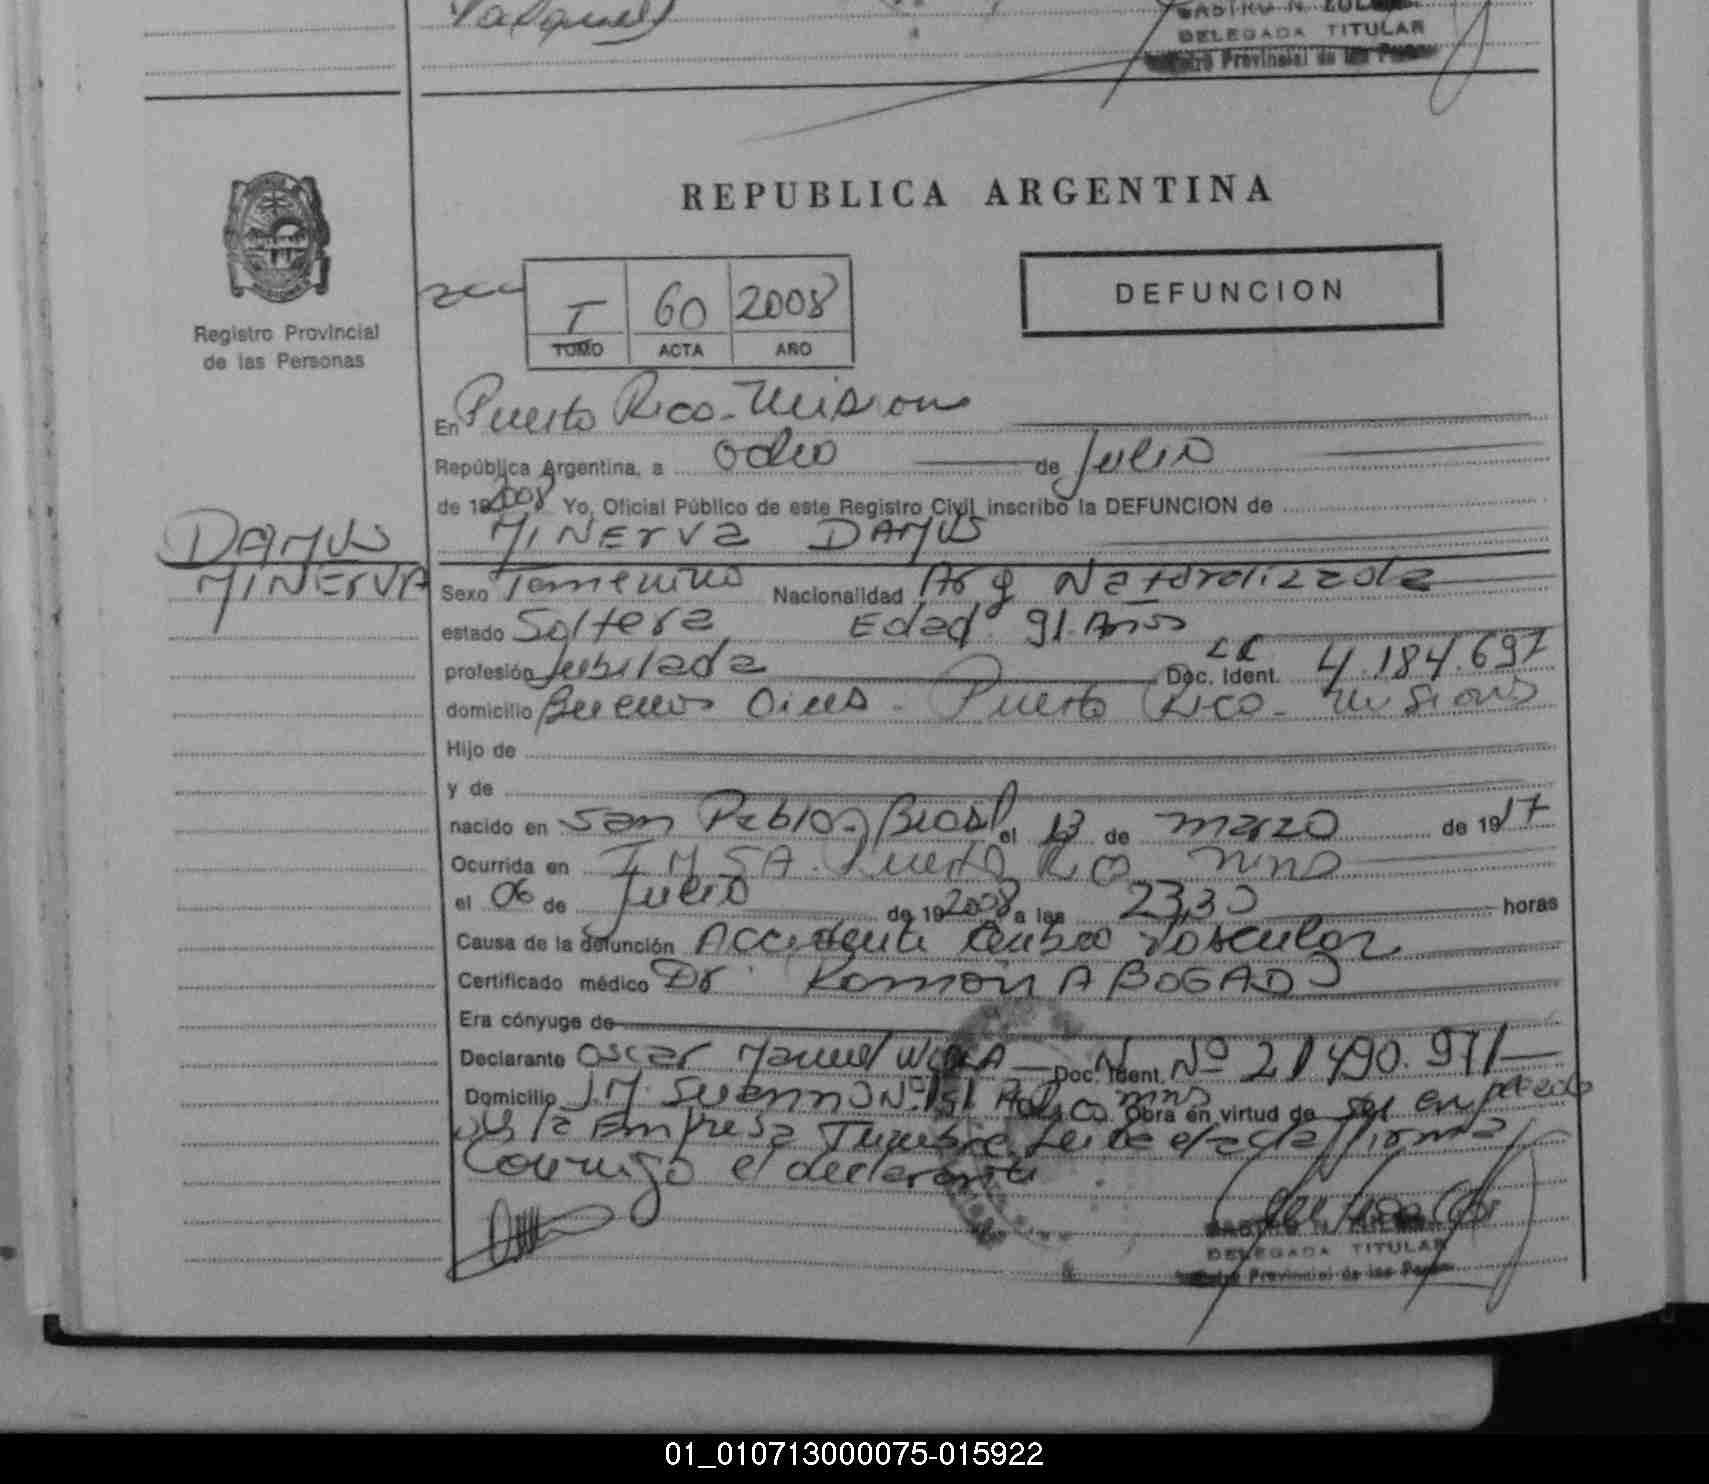 DELEGADA TITULAR
Provincial de las
REPUBLICA ARGENTINA
T 60 2008
TOMO ACTA AÑO
DEFUNCION
Registro Provincial
de las Personas
En Puerto Rico - Misiones
República Argentina, a ocho de Julio
de 192008 Yo, Oficial Público de este Registro Civil inscribo la DEFUNCION de
MINErVa DAMUS
DAMUS
MINErVA
Sexo Femenino Nacionalidad Arg Naturalizada
estado Soltera Edad 91 Años
profesión Jubilada Doc. Ident. LC 4.184.697
domicilio Buenos Aires - Puerto Rico - Misiones
Hijo de
y de
nacido en San Pablo - Brasil el 13 de marzo de 1917
Ocurrida en I.M.S.A. Puerto Rico Mns
el 06 de Julio de 192008 a las 23,30 horas
Causa de la defunción Accidente Cerebro Vascular
Certificado médico Dr. Ramón ABOGADO
Era cónyuge de
Declarante Oscar Manuel Doc. Ident. Nº 21.490.971
Domicilio J.M. Nº 151 Pto Rico mns Obra en virtud de ser empleado
de la Empresa Funebre Leída el acta firma
Conmigo el declarante
DELEGADA TITULAR
Provincial de las
01_010713000075-015922